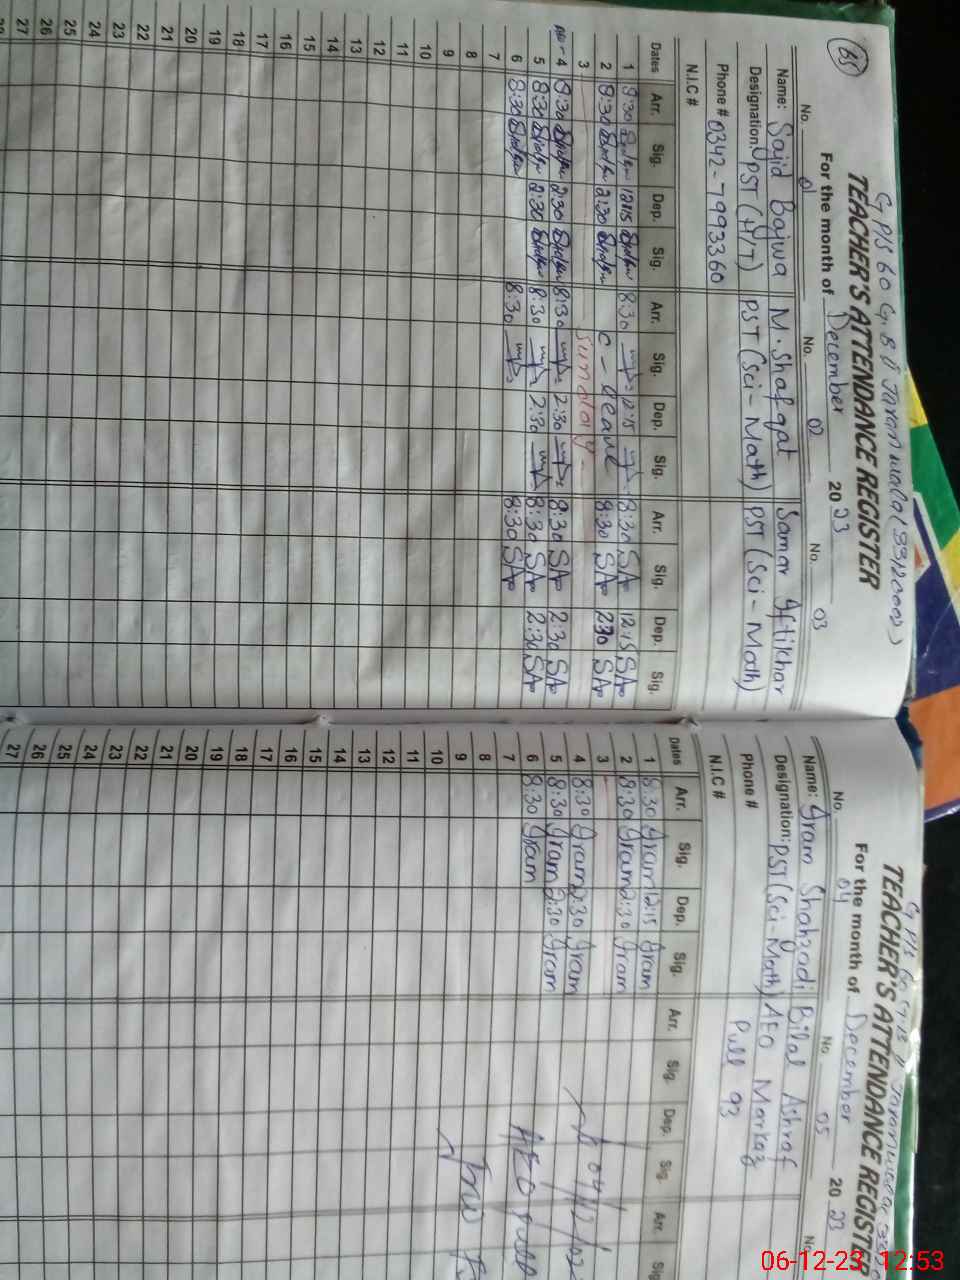 85
GPS 60 G.B
TEACHER'S ATTENDANCE REGISTER
For the month of December 2023
No. 01 No. 02 No. 03
Name: Sajid Bajwa M. Shafqat Samar Iftikhar
Designation: PST (H/T) PST (Sci-Math) PST (Sci-Math)
Phone # 0342-7993360
N.I.C #
Dates Arr. Sig. Dep. Sig. Arr. Sig. Dep. Sig. Arr. Sig. Dep. Sig.
1 8:30 12:15 8:30 12:15 8:30 SA 12:15 SA
2 8:30 2:30 C-leave 8:30 SA 230 SA
3 Sunday
4 8:30 2:30 8:30 2:30 8:30 SA 2:30 SA
5 8:30 2:30 8:30 2:30 8:30 SA 2:30 SA
6 8:30 8:30 8:30 SA
7
8
9
10
11
12
13
14
15
16
17
18
19
20
21
22
23
24
25
26
27
TEACHER'S ATTENDANCE REGISTER
For the month of December 2023
No. 04 No. 05 No.
Name: Iram Shahzadi Bilal Ashraf
Designation: PST (Sci-Math) AEO Markaz
Phone # Pull 93
N.I.C #
Dates Arr. Sig. Dep. Sig. Arr. Sig. Dep. Sig. Arr. Sig.
1 8:30 Iram 12:15 Iram
2 8:30 Iram 2:30 Iram
3
4 8:30 Iram 2:30 Iram
5 8:30 Iram 2:30 Iram
6 8:30 Iram
7
8
9
10
11
12
13
14
15
16
17
18
19
20
21
22
23
24
25
26
27
AEO
06-12-23 12:53